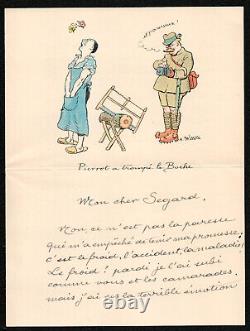 et permission !
Pierrot a trompé le Boche
Mon cher Segard,
Non, ce n'est pas la paresse
qui m'a empêché de tenir ma promesse;
c'est le froid, l'accident, la maladie.
Le froid! pardi je l'ai subi
comme vous et les camarades,
mais j'ai eu la terrible émotion